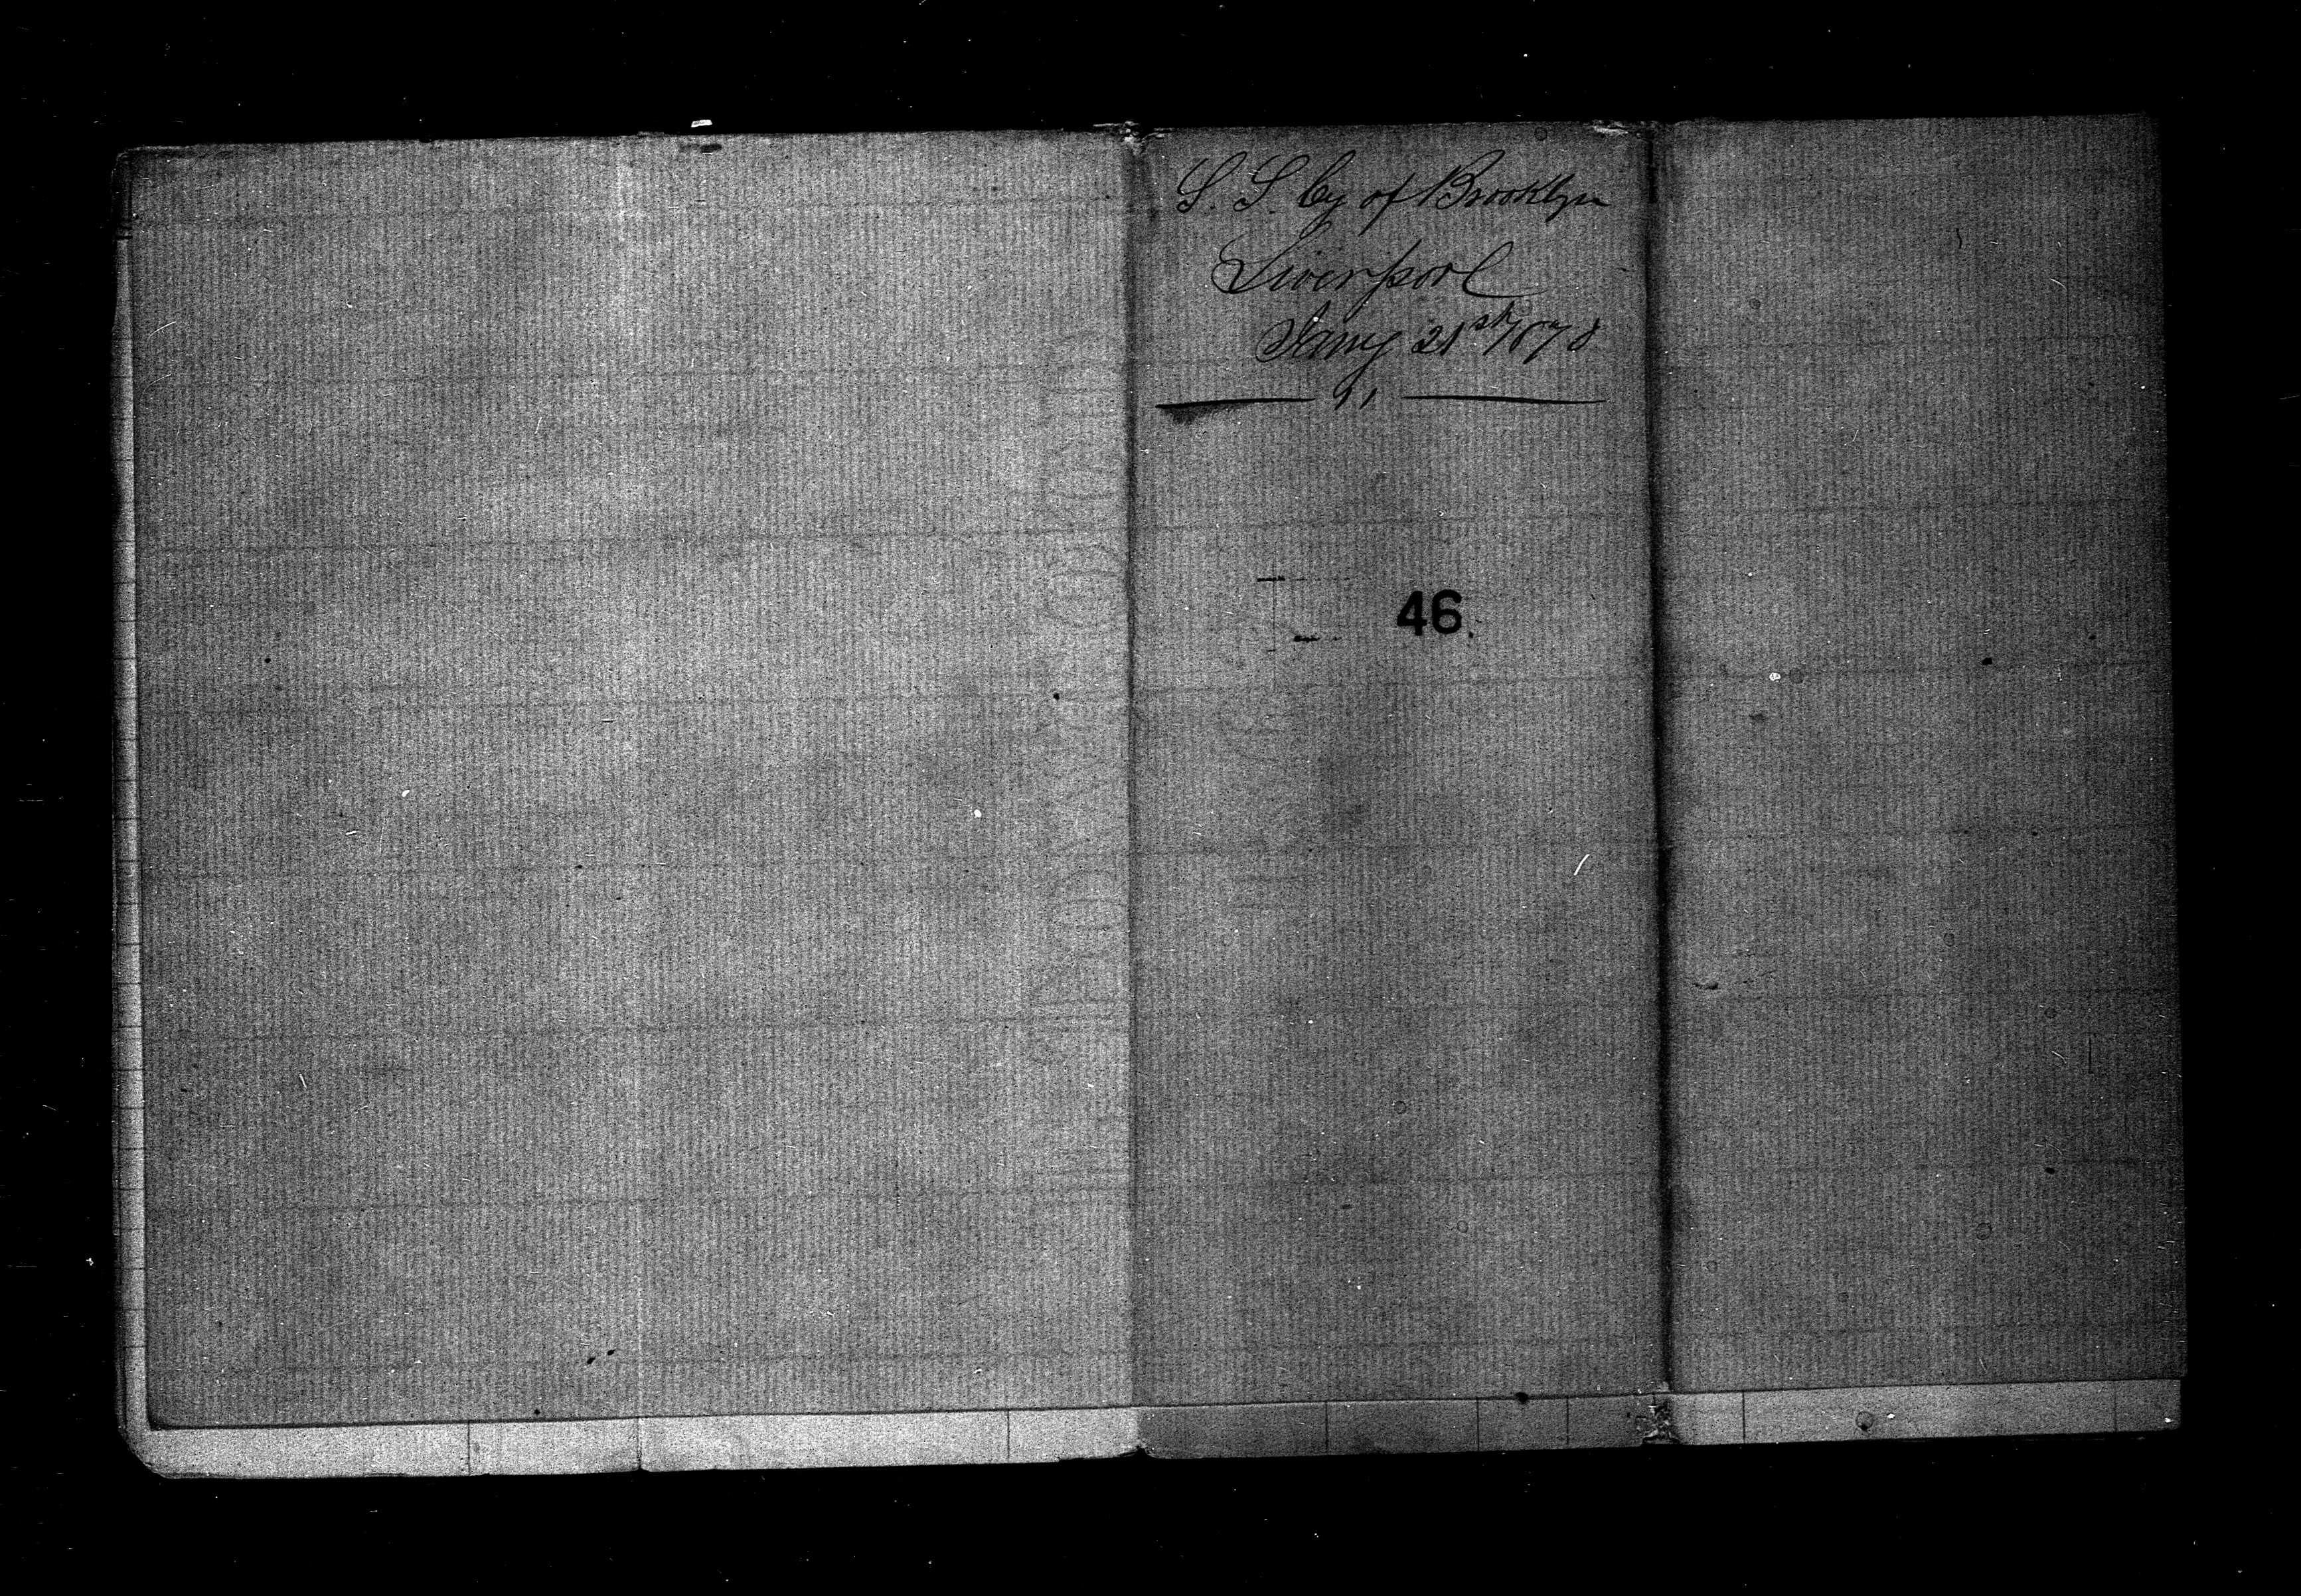 S. S. Cy of Brooklyn
Liverpool
Jany 21st/1878
91
46